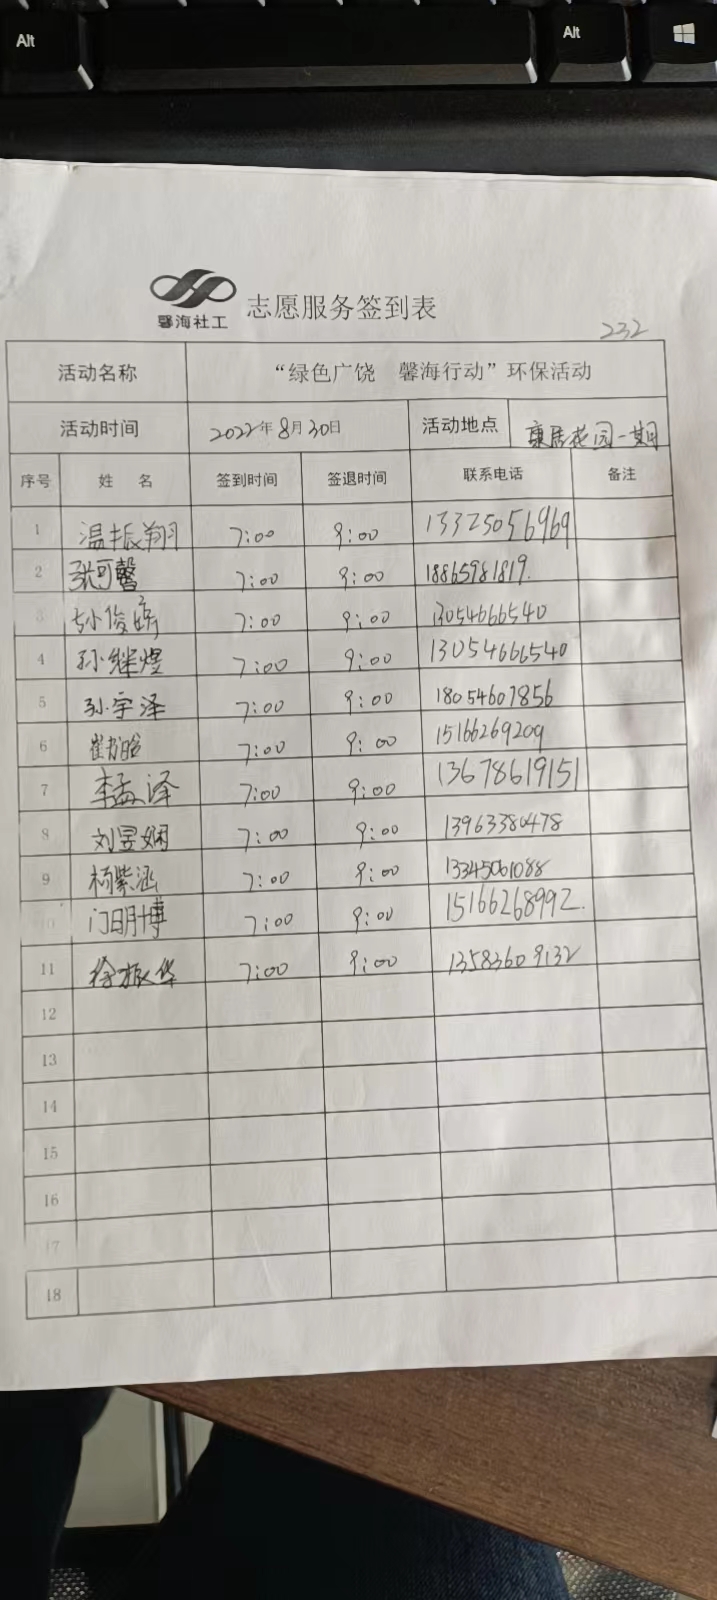 Alt
Alt
馨海社工
志愿服务签到表
232
活动名称 “绿色广饶 馨海行动”环保活动
活动时间 2022年8月30日 活动地点 康居花园一期
序号 姓 名 签到时间 签退时间 联系电话 备注
1 温振翔 7:00 9:00 13325056969
2 张可馨 7:00 9:00 18865981819.
3 孙俊 7:00 9:00 13054666540
4 孙继煜 7:00 9:00 13054666540
5 孙宇泽 7:00 9:00 18054607856
6 崔 7:00 9:00 15166269209
7 李孟泽 7:00 9:00 13678619151
8 刘昱娴 7:00 9:00 13963380478
9 杨紫涵 7:00 9:00 13345061088
10 门明博 7:00 9:00 15166268992.
11 徐振华 7:00 9:00 13583609132
12
13
14
15
16
17
18